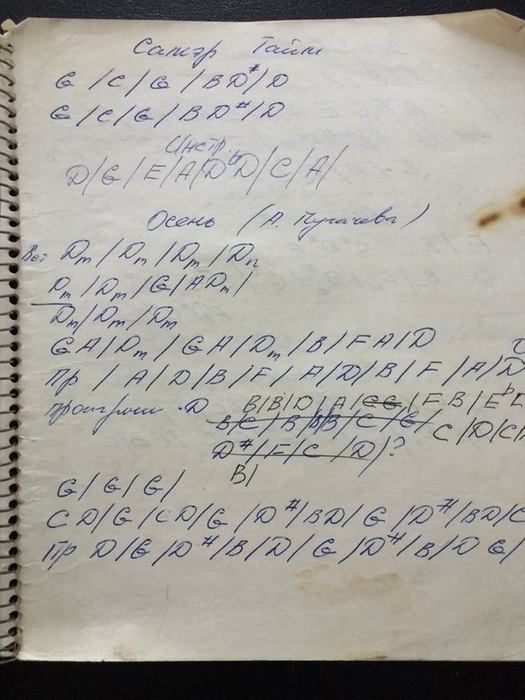 Саммэр Тайм
G / C / G / B D# / D
G / C / G / B D# / D
Инстр.
D / G / E / A / Db D / C / A /
Осень (А. Пугачева)
Вст Dm / Dm / Dm / Dm
Dm / Dm / G / A Dm /
Dm / Dm / Dm
G A / Dm / G A / Dm / B / F A / D
Пр / A / D / B / F / A / D / B / F / A / D
проигрыш D B / B / D / A / C G / F B / Eb
B / C / B / B / B / C / G / C / D / C
D# / F / C / D / ?
B /
G / G / G /
C D / G / C D / G / D# / B D / G / D# / B D / C
Пр D / G / D# / B / D / G / D# / B / D G /